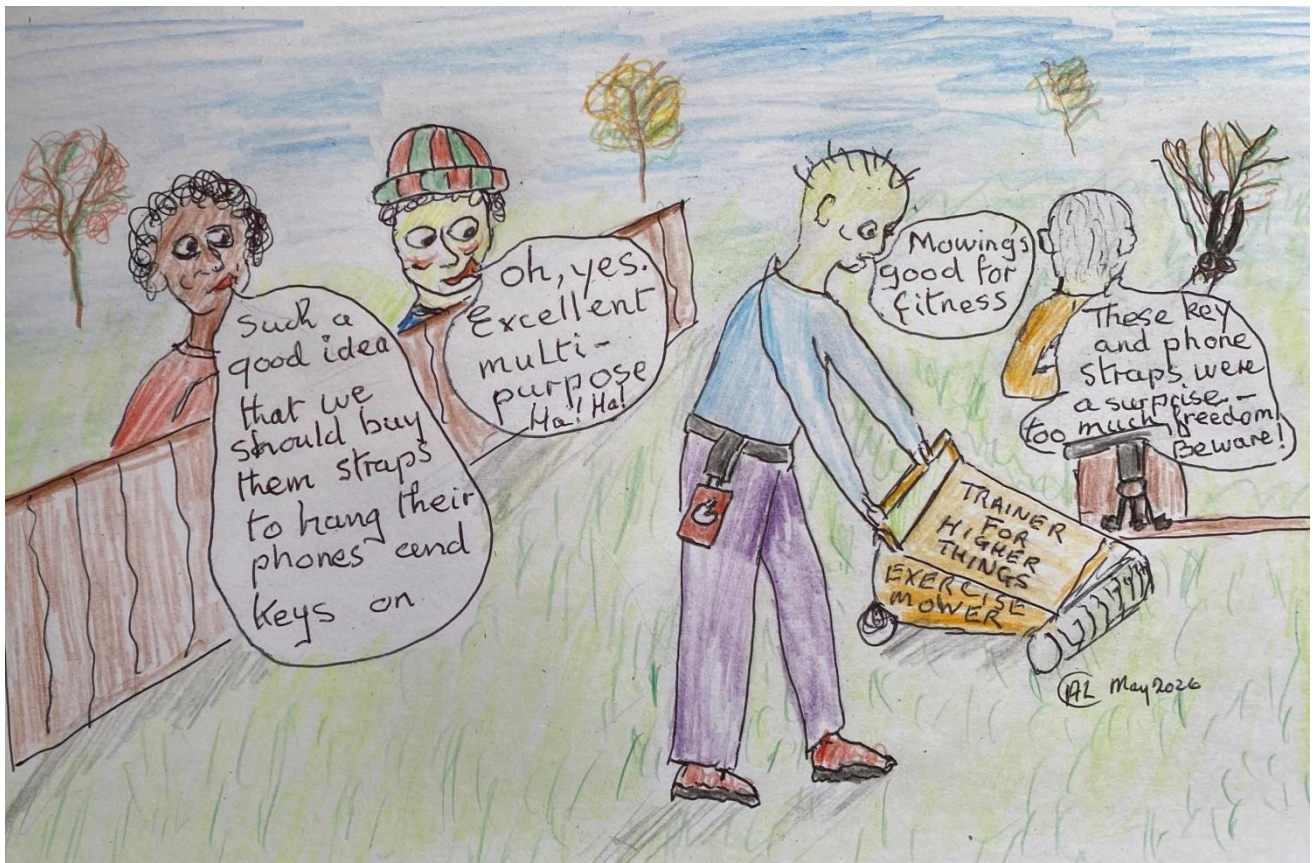 Such a
good idea
that we
should buy
them straps
to hang their
phones and
keys on
oh, yes.
Excellent
multi-
purpose
Ha! Ha!
Mowings
good for
fitness
These key
and phone
straps were
a surprise -
too much freedom!
Beware!
TRAINER
FOR
HIGHER
THINGS
EXERCISE
MOWER
AL May 2026